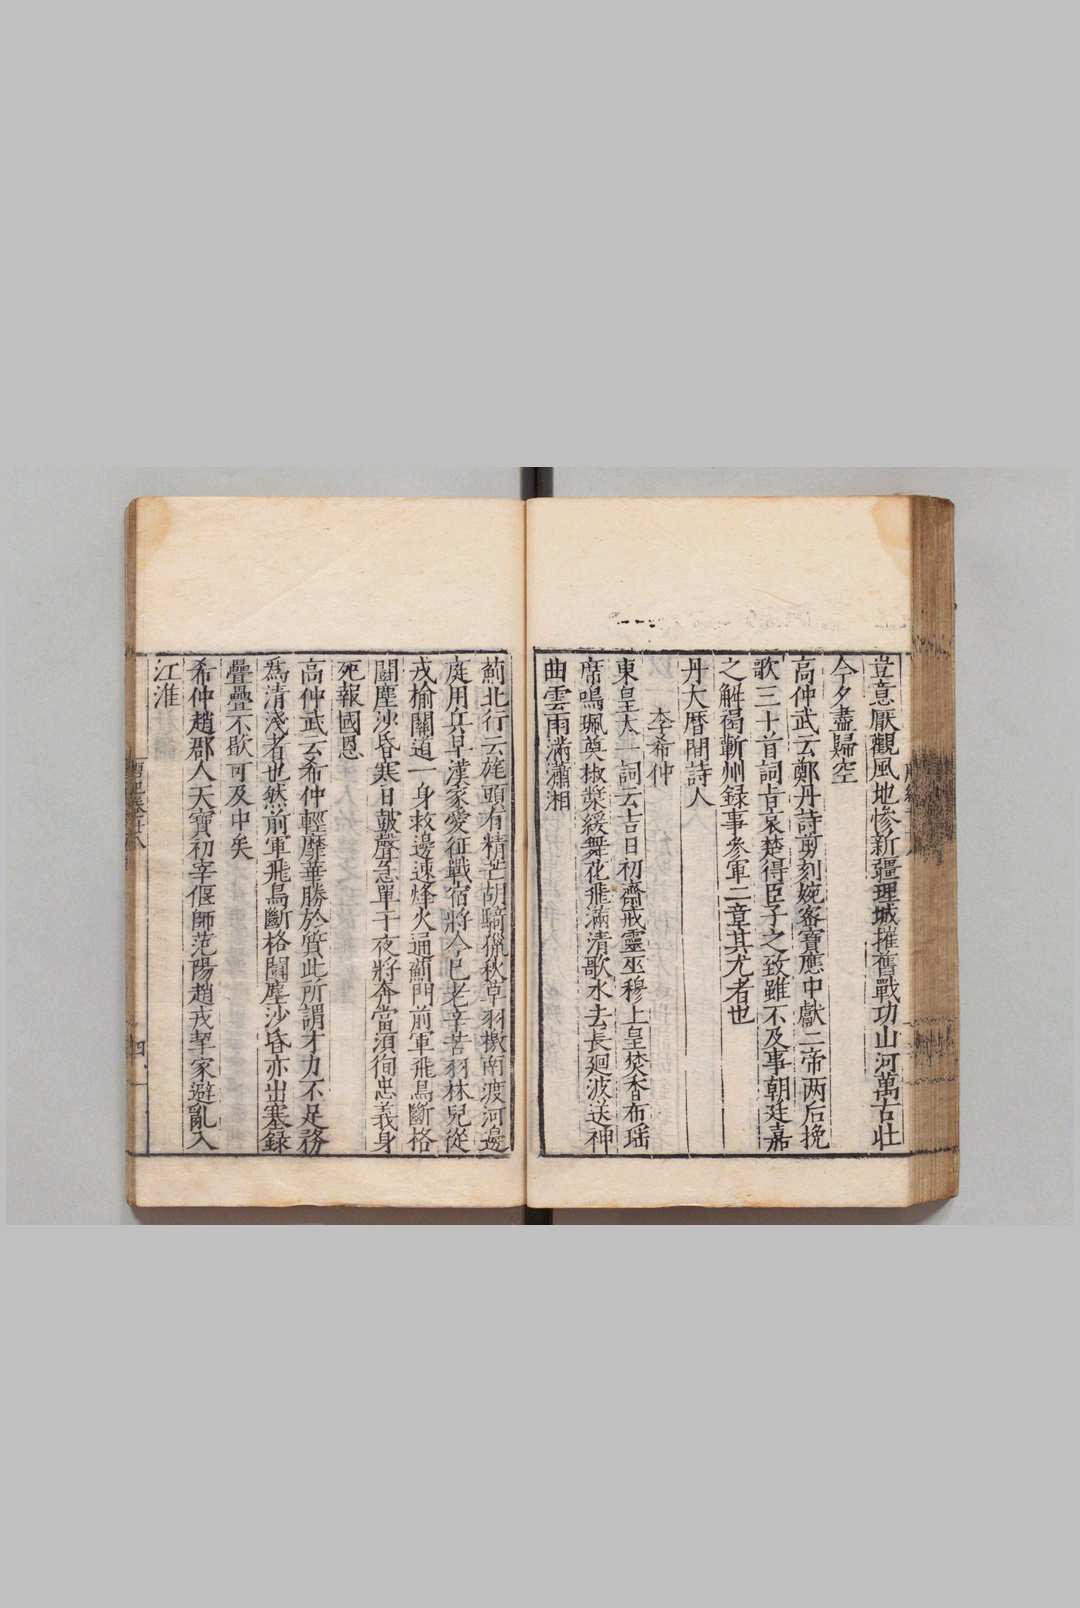 豈意厭觀風地慘新疆理城摧舊戰功山河萬古壯
今夕盡歸空
高仲武云鄭丹詩剪刻婉密寶應中獻二帝两后挽
歌三十首詞旨哀楚得臣子之致雖不及事朝廷嘉
之解褐蘄州録事參軍二章其尤者也
丹大暦間詩人
李希仲
東皇太一詞云吉日初齋戒靈巫穆上皇焚香布瑶
席鳴珮奠椒漿緩舞花飛滿清歌水去長廻波送神
曲雲雨滿瀟湘
薊北行云旄頭有精芒胡騎獵秋草羽檄南渡河邊
庭用兵早漢家愛征戰宿將今已老辛苦羽林兒從
戎榆關道一身救邊速烽火通薊門前軍飛鳥斷格
鬪塵沙昏寒日鼓聲急單于夜將奔當須徇忠義身
死報國恩
高仲武云希仲輕靡華勝於質此所謂才力不足務
爲清淺者也然前軍飛鳥斷格鬪塵沙昏亦出塞録
疊疊不歇可及中矣
希仲趙郡人天寶初宰偃師范陽趙戎挈家避亂入
江淮
四